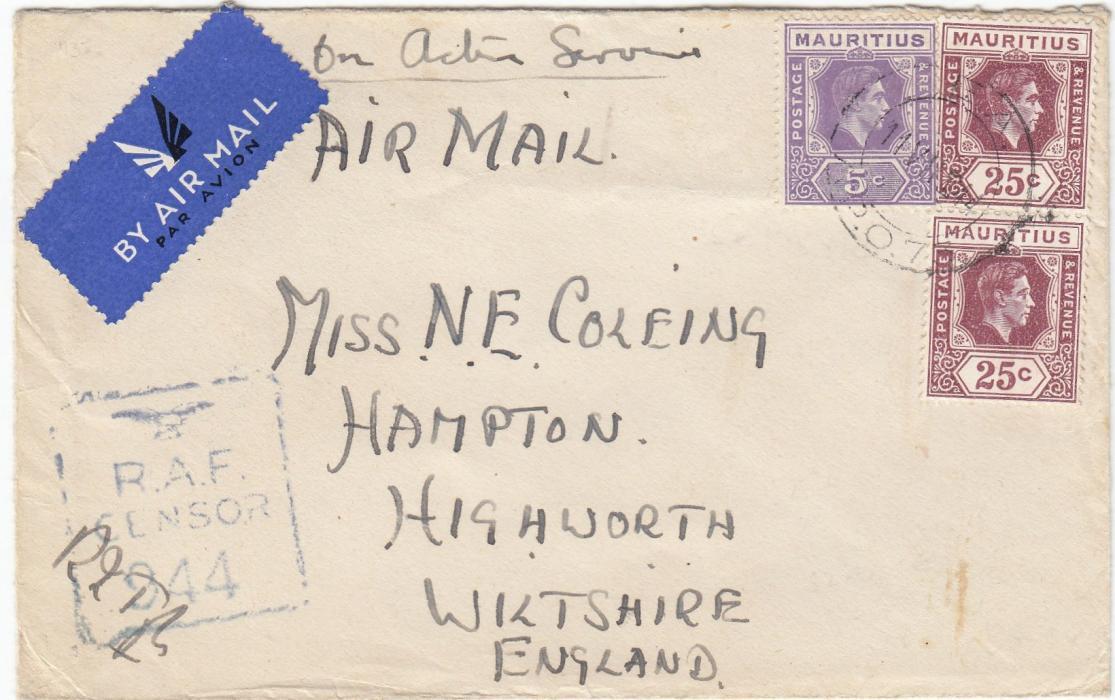 On Active Service
AIR MAIL.
BY AIR MAIL
PAR AVION
MAURITIUS
POSTAGE & REVENUE
5c
MAURITIUS
POSTAGE & REVENUE
25c
MAURITIUS
POSTAGE & REVENUE
25c
MISS. N.E. COLEING
HAMPTON.
HIGHWORTH
WILTSHIRE
ENGLAND.
R.A.F.
CENSOR